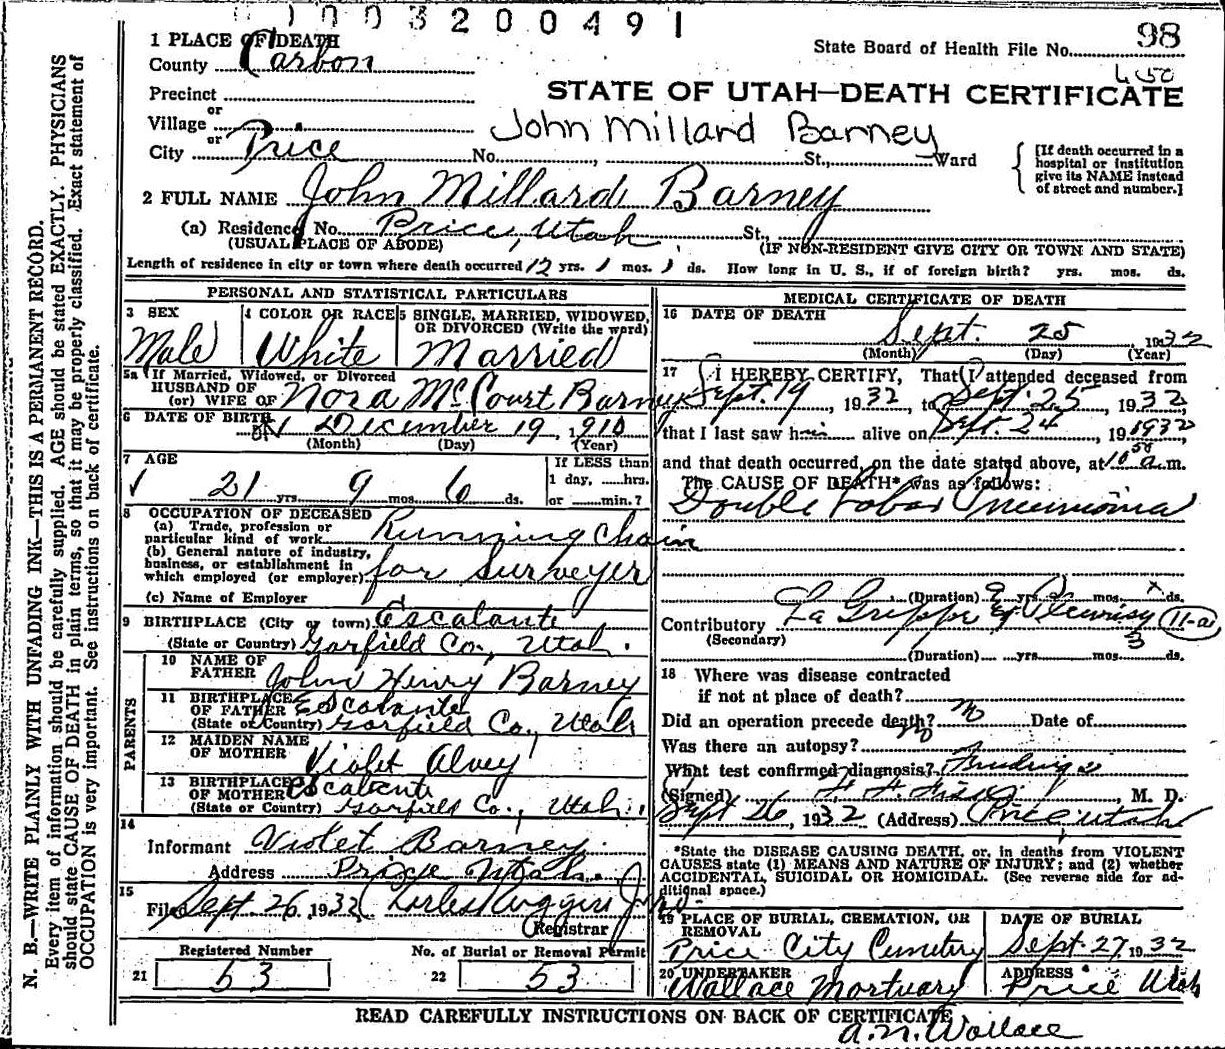 1003200491
98
State Board of Health File No.
1 PLACE OF DEATH
County Carbon
STATE OF UTAH—DEATH CERTIFICATE
Precinct
or
Village
John Millard Barney
or
City Price No. , St., Ward
[If death occurred in a
hospital or institution
give its NAME instead
of street and number.]
2 FULL NAME John Millard Barney
(a) Residence No. Price, Utah St.,
(USUAL PLACE OF ABODE) (IF NON-RESIDENT GIVE CITY OR TOWN AND STATE)
Length of residence in city or town where death occurred 12 yrs. 1 mos. 1 ds. How long in U. S., if of foreign birth? yrs. mos. ds.
PERSONAL AND STATISTICAL PARTICULARS
3 SEX
Male
4 COLOR OR RACE
White
5 SINGLE, MARRIED, WIDOWED,
OR DIVORCED (Write the word)
Married
5a If Married, Widowed, or Divorced
HUSBAND OF
(or) WIFE OF Nora McCourt Barney
6 DATE OF BIRTH December 19, 1910
(Month) (Day) (Year)
7 AGE
21 yrs. 9 mos. 6 ds.
If LESS than
1 day, hrs.
or min.?
8 OCCUPATION OF DECEASED
(a) Trade, profession or
particular kind of work Running Chain
(b) General nature of industry,
business, or establishment in
which employed (or employer) for Surveyer
(c) Name of Employer
9 BIRTHPLACE (City or town) Escalante
(State or Country) Garfield Co., Utah.
PARENTS
10 NAME OF
FATHER John Henry Barney
11 BIRTHPLACE
OF FATHER Escalante
(State or Country) Garfield Co., Utah
12 MAIDEN NAME
OF MOTHER Violet Alvey
13 BIRTHPLACE
OF MOTHER Escalante
(State or Country) Garfield Co., Utah
14
Informant Violet Barney
Address Price Utah.
15
Filed Sept. 26, 1932
Registrar
Registered Number
21 53
No. of Burial or Removal Permit
22 53
MEDICAL CERTIFICATE OF DEATH
16 DATE OF DEATH
Sept. 25 1932
(Month) (Day) (Year)
17 I HEREBY CERTIFY, That I attended deceased from
Sept. 19, 1932, to Sept. 25, 1932,
that I last saw him alive on Sept. 24, 19 1932
and that death occurred, on the date stated above, at 10 50 a.m.
The CAUSE OF DEATH* was as follows:
Double Lobar Pneumonia
(Duration) yrs. mos. ds.
Contributory La Grippe & Pleurisy 11-a
(Secondary)
(Duration) yrs. mos. 3 ds.
18 Where was disease contracted
if not at place of death?
Did an operation precede death? no Date of
Was there an autopsy?
What test confirmed diagnosis?
(Signed) , M. D.
Sept 26, 1932 (Address) Price, Utah
*State the DISEASE CAUSING DEATH, or, in deaths from VIOLENT
CAUSES state (1) MEANS AND NATURE OF INJURY; and (2) whether
ACCIDENTAL, SUICIDAL OR HOMICIDAL. (See reverse side for ad-
ditional space.)
19 PLACE OF BURIAL, CREMATION, OR
REMOVAL
Price City Cemetery
DATE OF BURIAL
Sept. 27, 1932
20 UNDERTAKER
Wallace Mortuary
ADDRESS
Price Utah
READ CAREFULLY INSTRUCTIONS ON BACK OF CERTIFICATE
A. N. Wallace
N. B.—WRITE PLAINLY WITH UNFADING INK—THIS IS A PERMANENT RECORD.
Every item of information should be carefully supplied. AGE should be stated EXACTLY. PHYSICIANS
should state CAUSE OF DEATH in plain terms, so that it may be properly classified. Exact statement of
OCCUPATION is very important. See instructions on back of certificate.